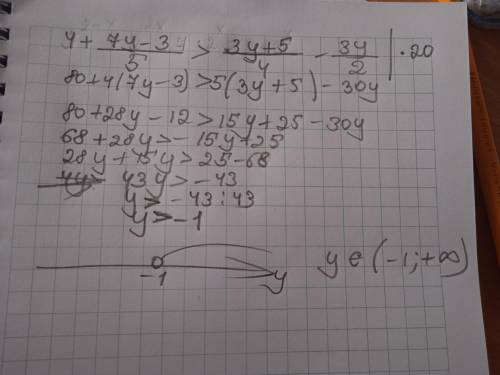 4 + (7y-3)/5 > (3y+5)/4 - 3y/2 | · 20
80+4(7y-3)>5(3y+5)-30y
80+28y-12>15y+25-30y
68+28y>-15y+25
28y+15y>25-68
43y>-43
y>-43:43
y>-1
-1 y y∈(-1;+∞)